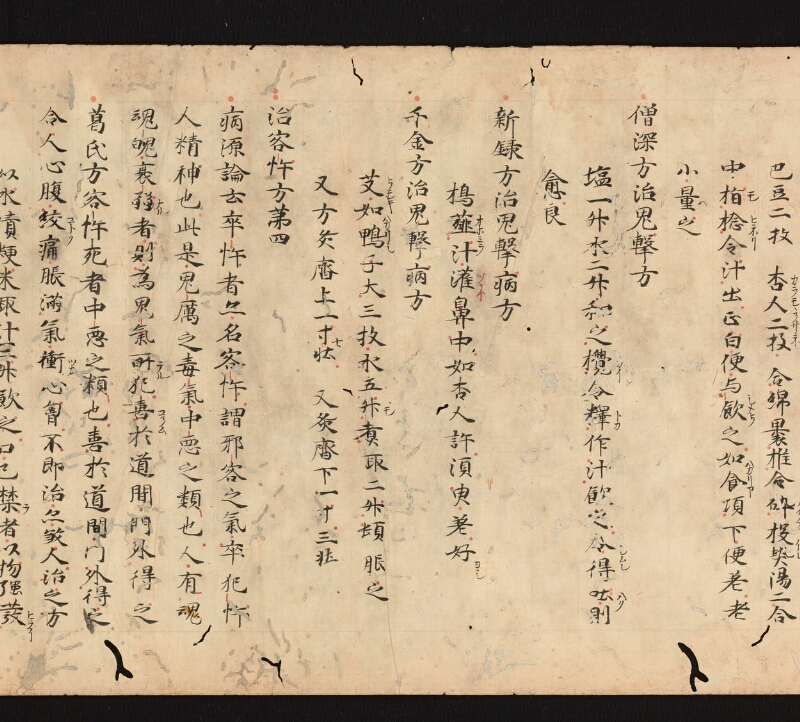 巴豆二枚　杏人二枚　合綿裹椎令碎投熱湯二合
中指捻令汁出正白便与飲之如食項下便差老
小量之
僧深方治鬼擊方
塩一升水二升和之攪令釋作汁飲之令得吐則
愈良
新錄方治鬼擊病方
搗薤汁灌鼻中如杏人許須臾差好
千金方治鬼擊病方
艾如鴨子大三枚水五升煮取二升頓服之
又方灸齊上一寸七壯　又灸齊下一寸三壯
治客忤方第四
病源論云卒忤者亦名客忤謂邪客之氣卒犯忤
人精神也此是鬼厲之毒氣中悪之類也人有魂
魂魄衰弱者則為鬼氣所犯善於道間門外得之
葛氏方客忤死者中悪之類也善於道間門外得之
令人心腹絞痛脹滿氣衝心胷不即治亦煞人治之方
以水漬粳米取汁三升飲之口已禁者以物強發